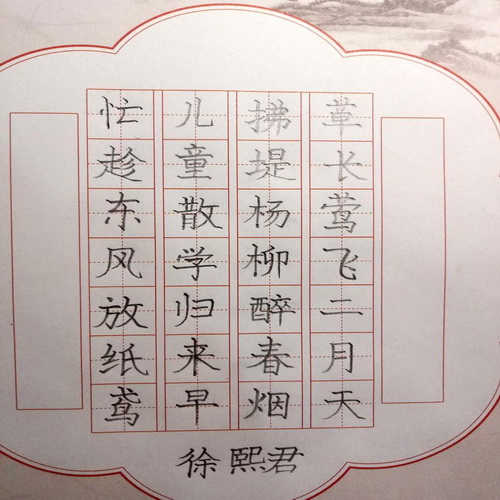 草长莺飞二月天
拂堤杨柳醉春烟
儿童散学归来早
忙趁东风放纸鸢
徐熙君